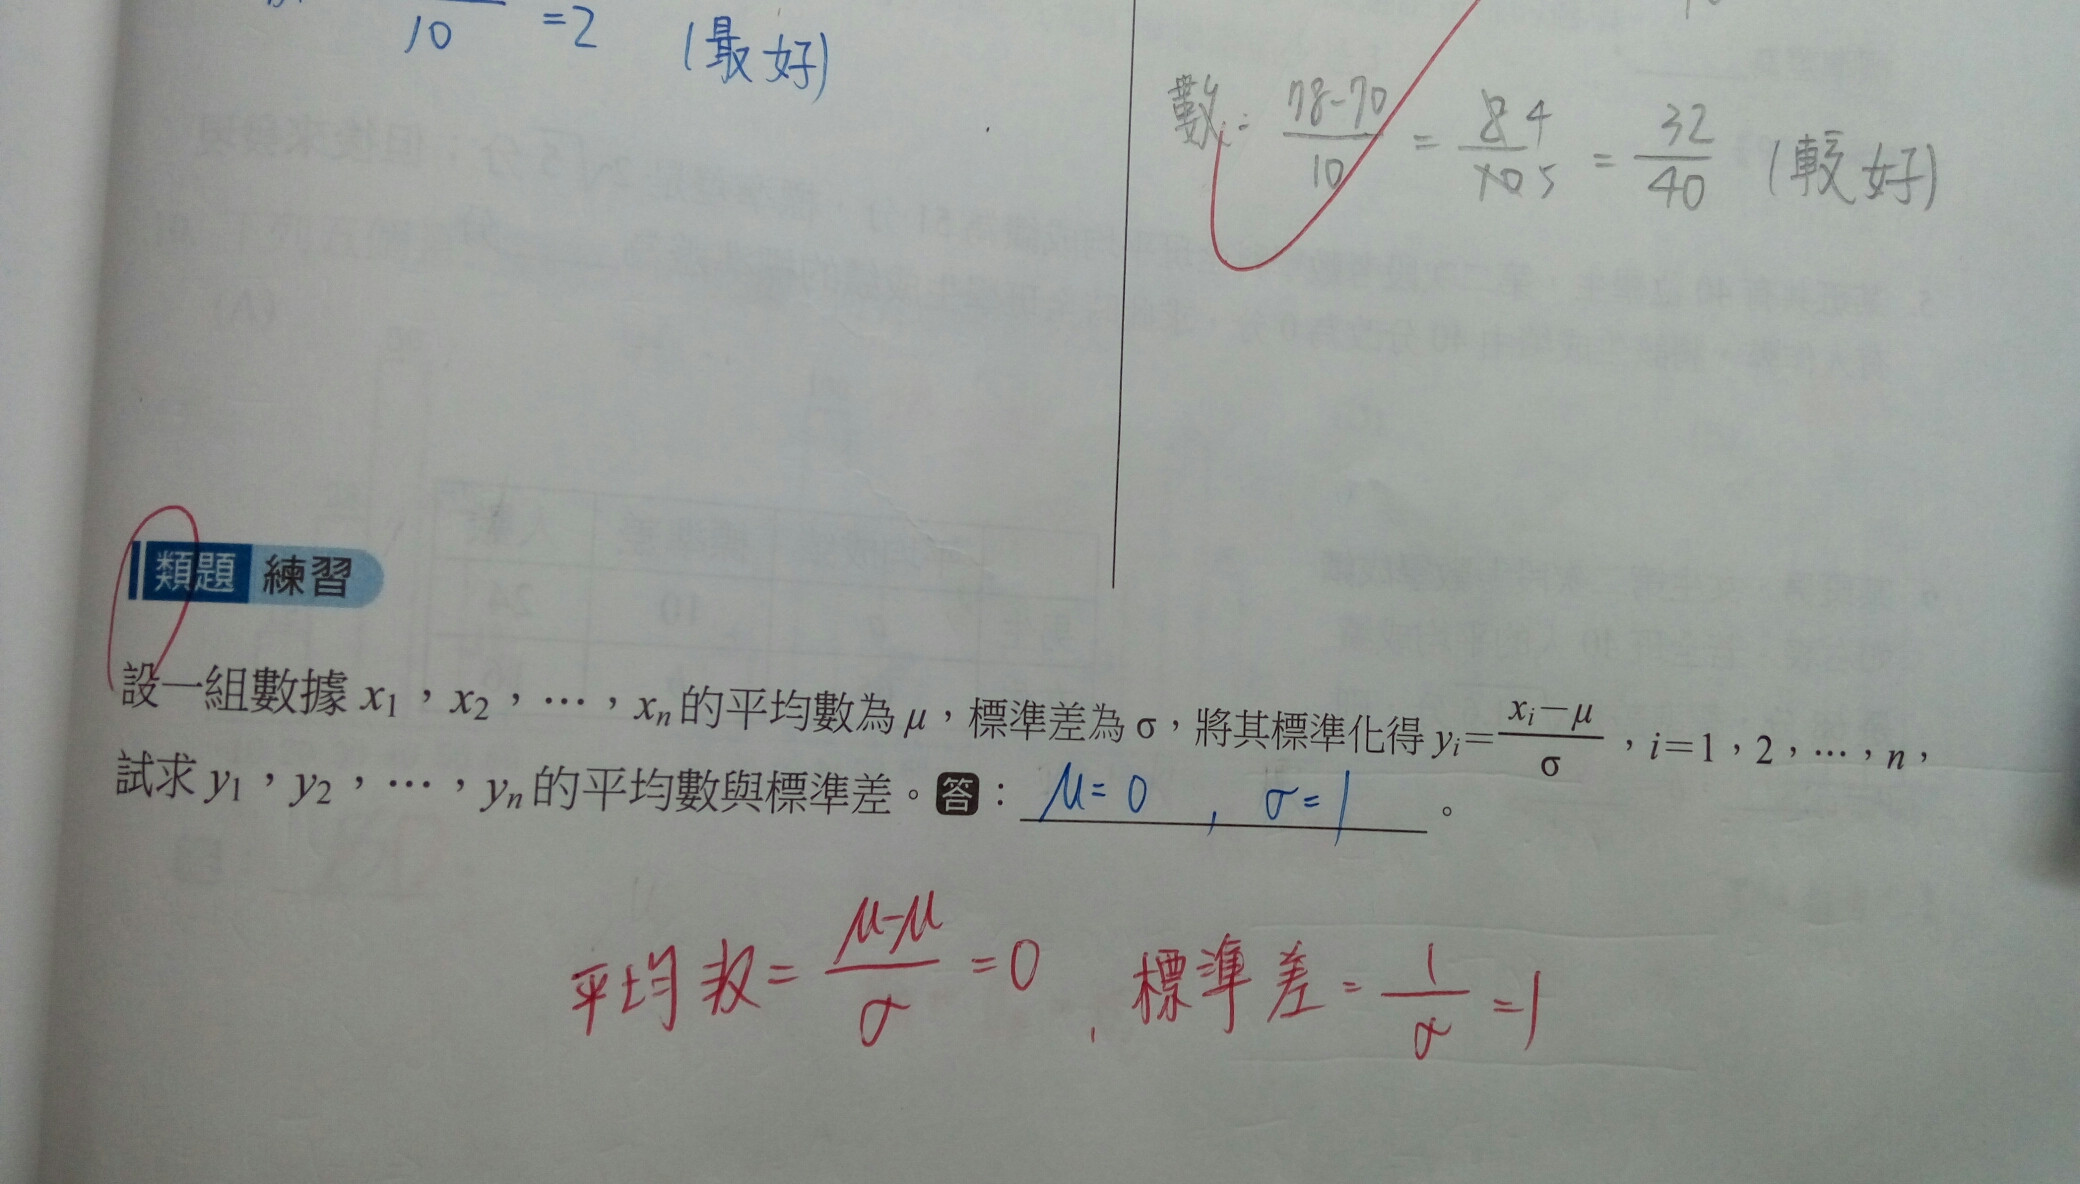 10 =2 (最好)
數: 78-70/10 = 84/105 = 32/40 (較好)
類題 練習
設一組數據 x₁，x₂，…，xₙ 的平均數為 μ，標準差為 σ，將其標準化得 yᵢ=(xᵢ-μ)/σ，i=1，2，…，n，
試求 y₁，y₂，…，yₙ 的平均數與標準差。答：μ=0 , σ=1。
平均数= (μ-μ)/σ =0 , 標準差= 1/σ =1